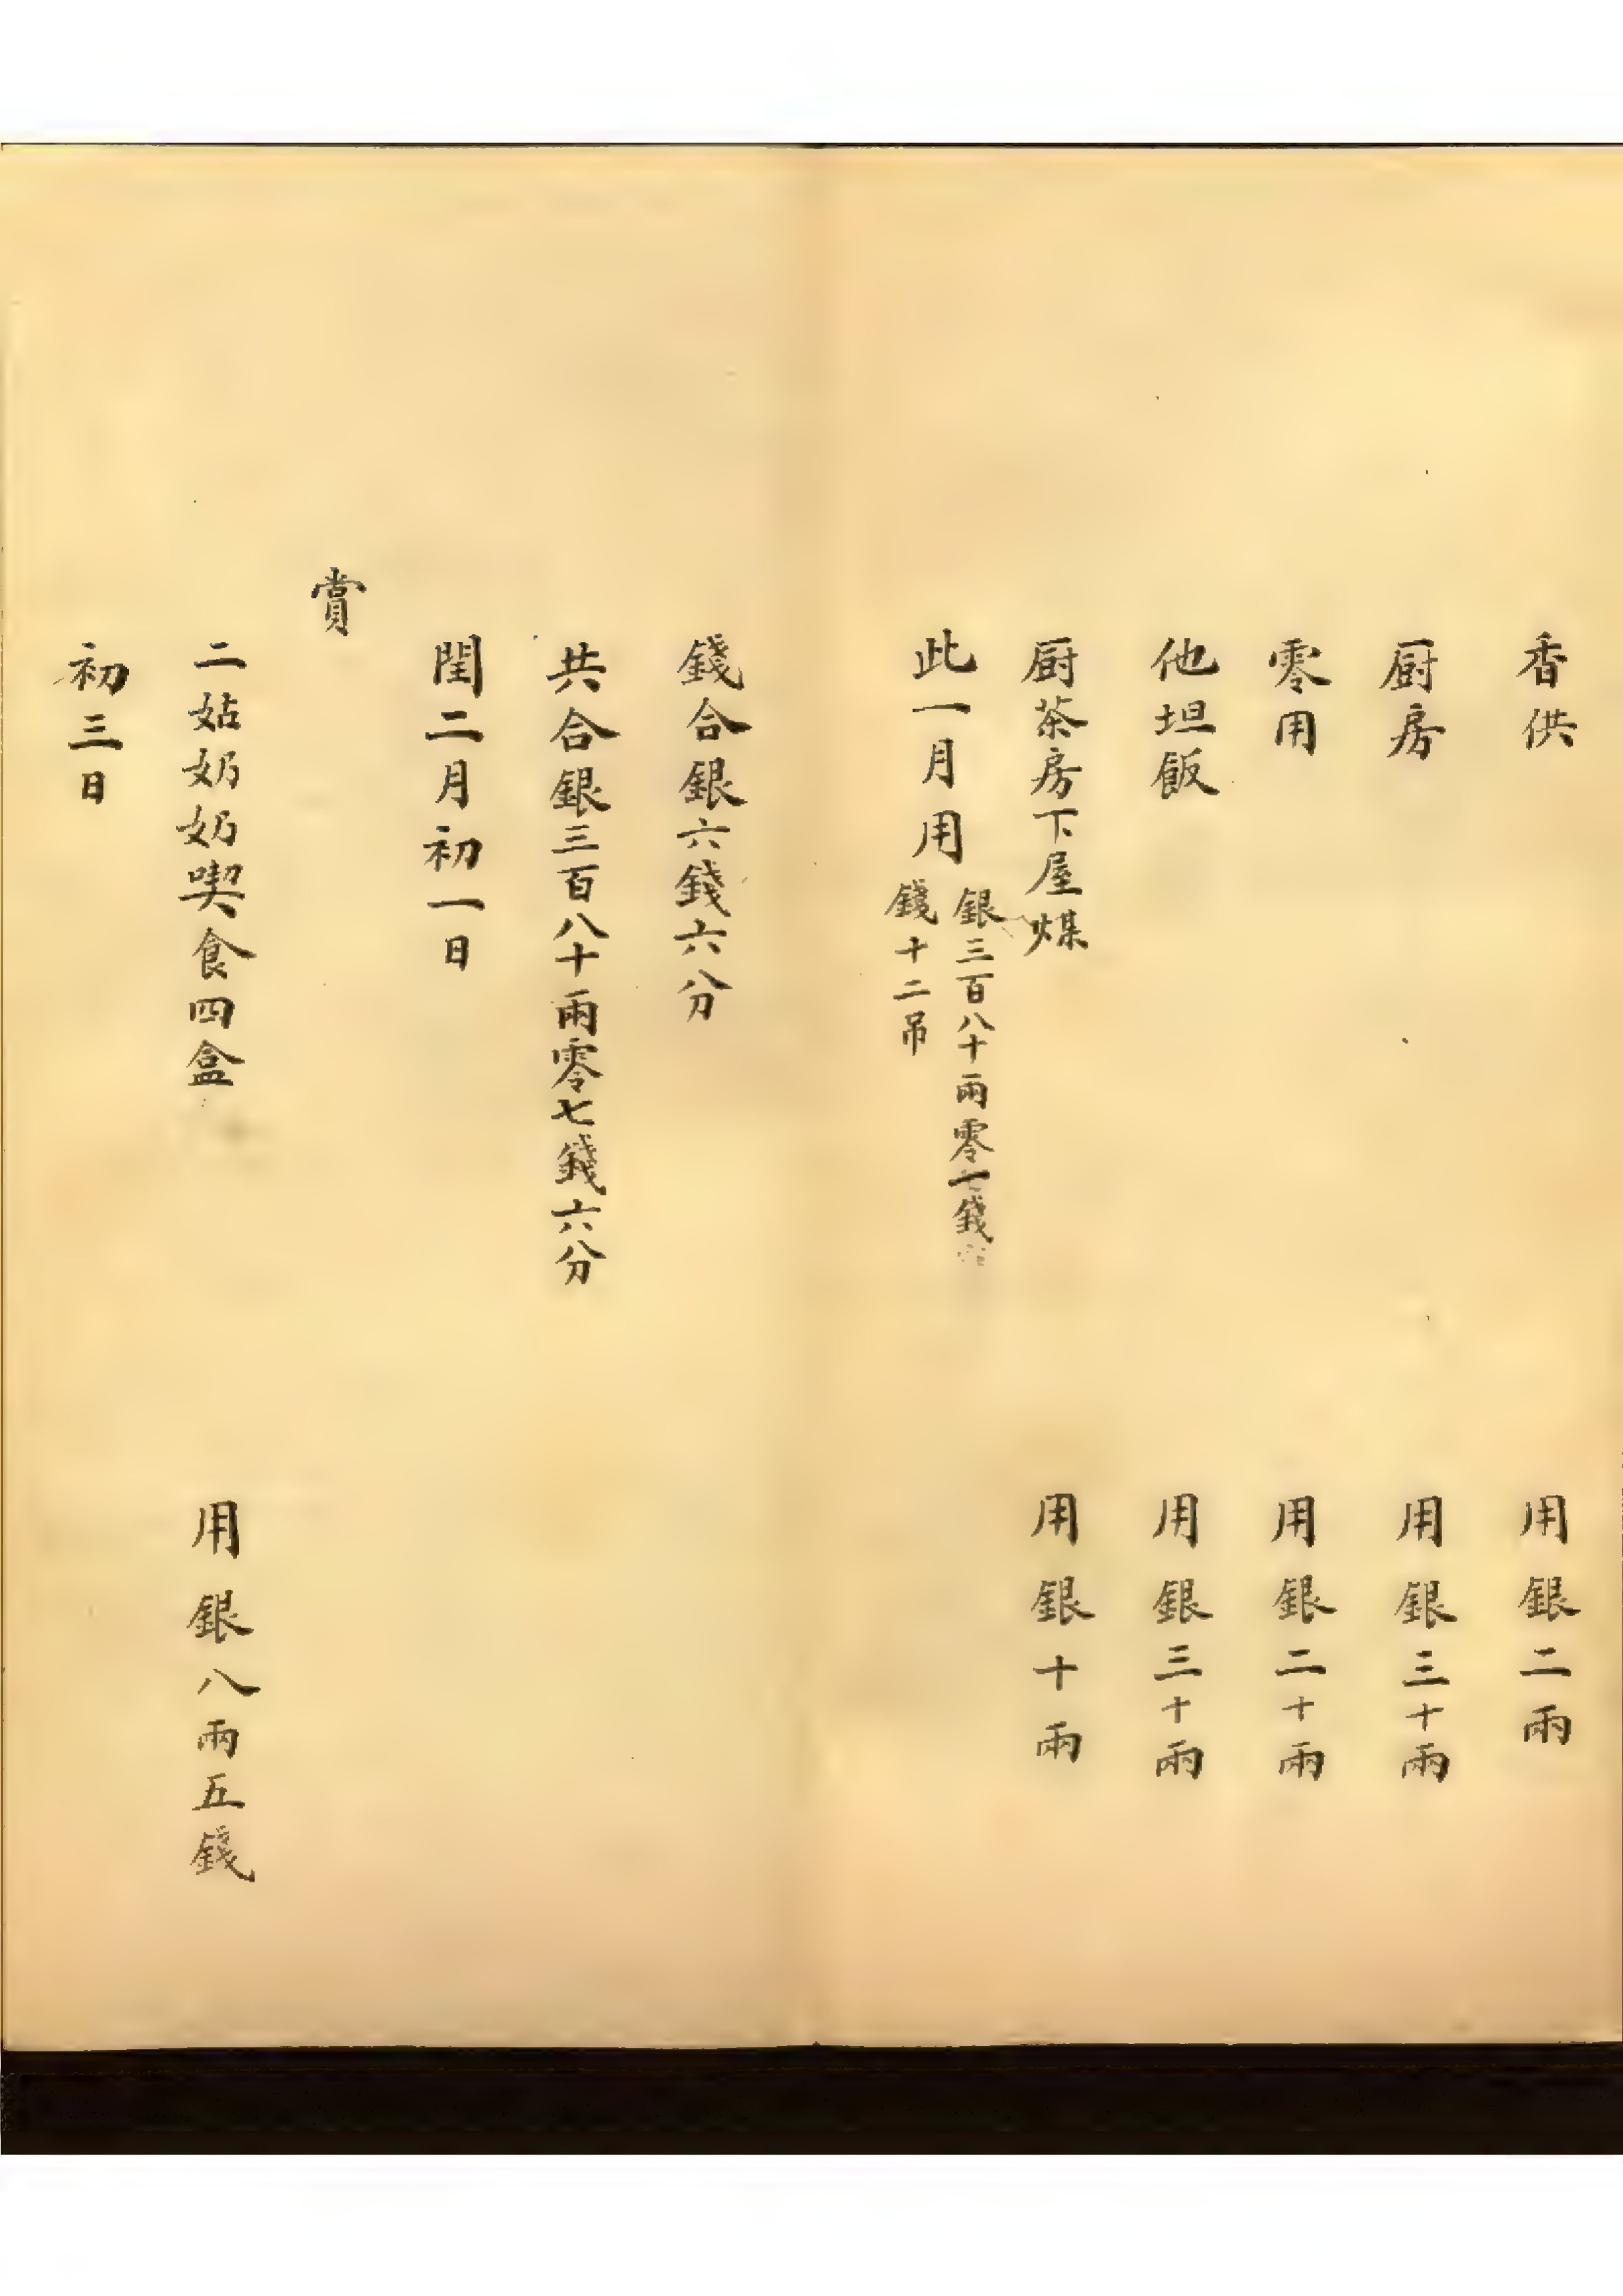 香供 用銀二兩
厨房 用銀三十兩
零用 用銀二十兩
他坦飯 用銀三十兩
厨茶房下屋煤 用銀十兩
此一月用
銀三百八十兩零一錢
錢十二吊
錢合銀六錢六分
共合銀三百八十兩零七錢六分
閏二月初一日
賞
二姑奶奶喫食四盒 用銀八兩五錢
初三日